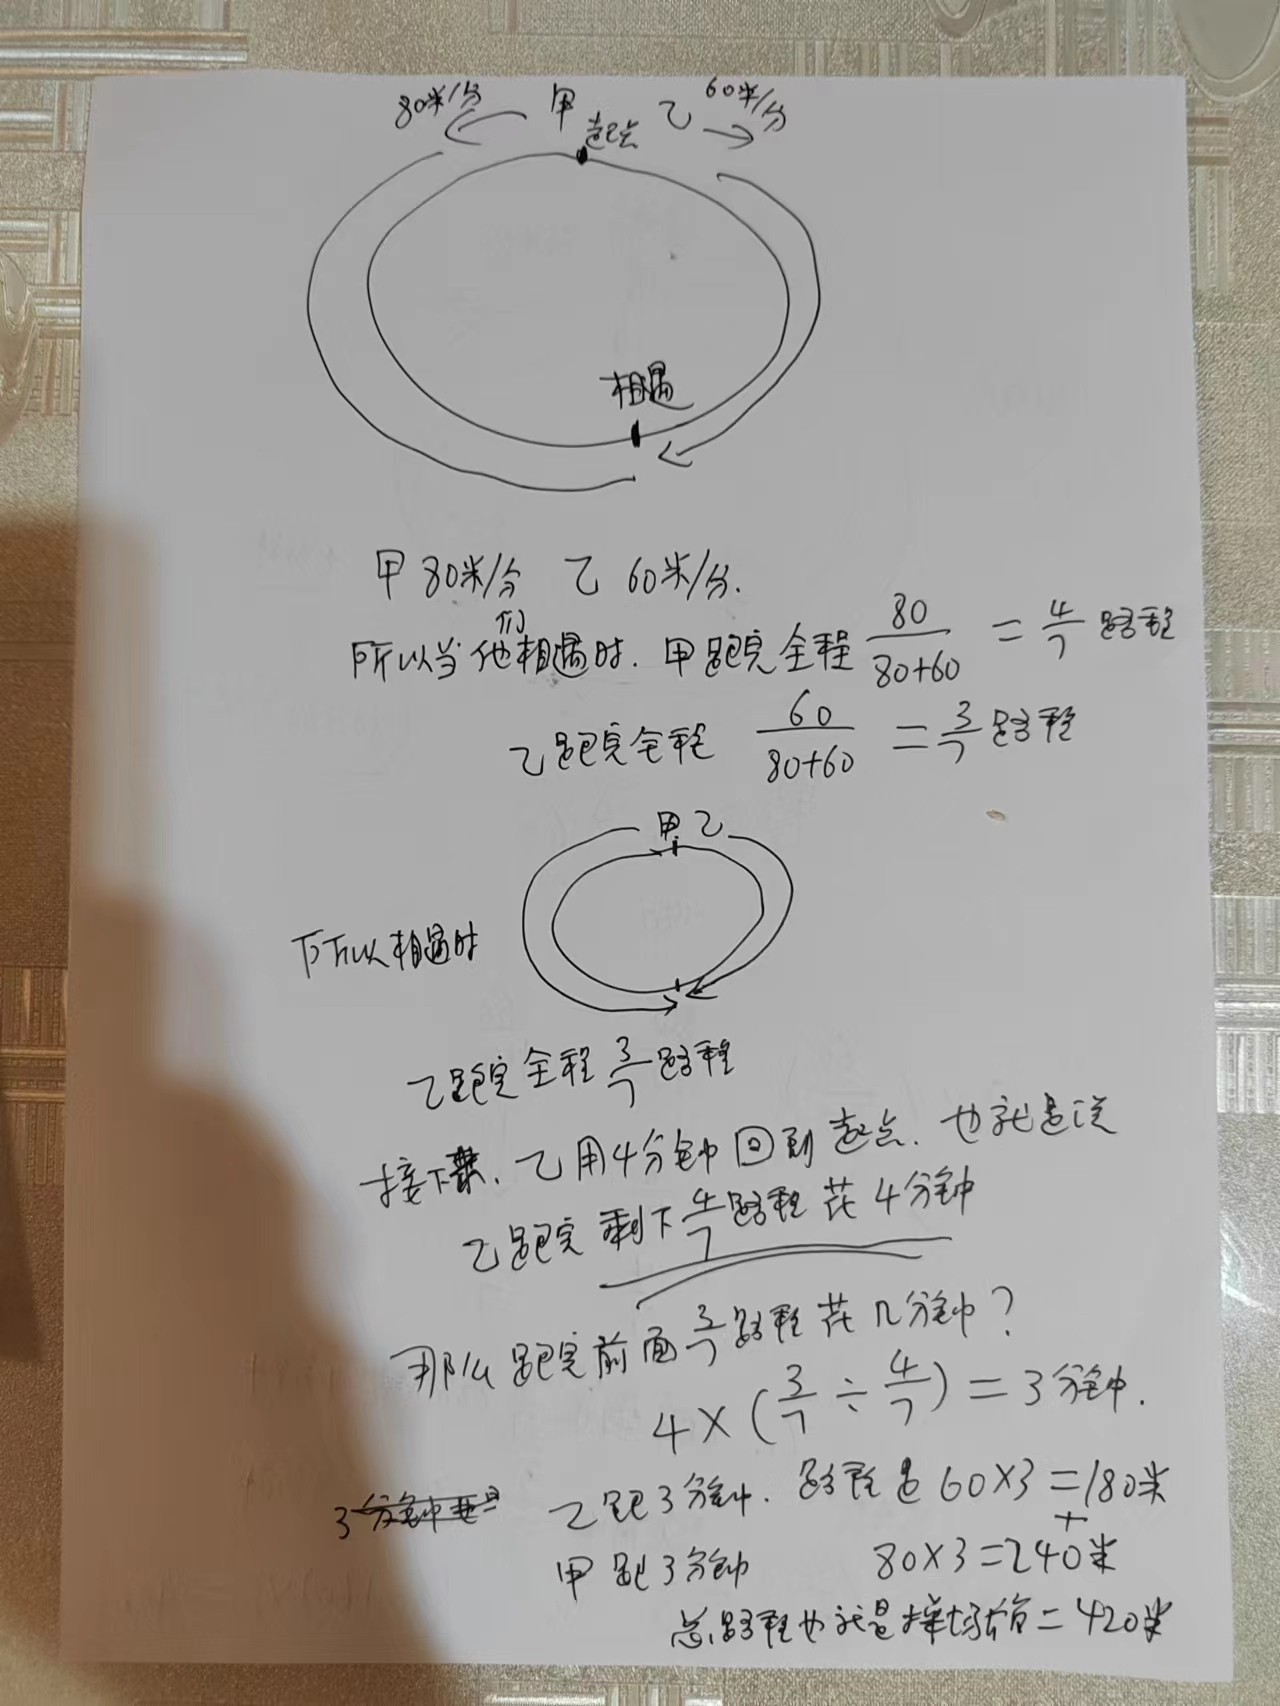 80米/分 甲 乙 60米/分
起点
相遇
甲 80米/分 乙 60米/分.
所以当他们相遇时. 甲跑完全程 80/(80+60) = 4/7 路程
乙跑完全程 60/(80+60) = 3/7 路程
甲 乙
所以相遇时
乙跑完全程 3/7 路程
接下来. 乙用4分钟回到起点. 也就是说
乙跑完剩下 4/7 路程花4分钟
那么跑完前面 3/7 路程花几分钟?
4×(3/7÷4/7)=3分钟.
3分钟 乙跑3分钟. 路程是60×3=180米
+
甲跑3分钟 80×3=240米
总路程也就是操场 = 420米